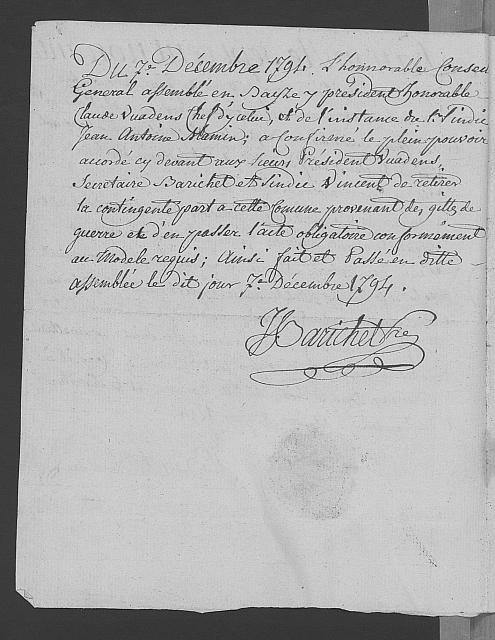 Du 7.e Décembre 1794. L'honnorable Conseil
General assemblé en Dayze y président honorable
Claude Vuadens Chef d'ycelui, et de l'instance du S.r Sindic
Jean Antoine Mamin; a confirmé le plein pouvoir
acordé cy devant aux sieurs Président Vuadens,
Secrétaire Barichet et Sindic Vincent de retirer
la contingente part a cette Comune provenant des gilts de
guerre et d'en passer l'acte obligatoire conformément
au Modele reçus; Ainsi fait et Passé en ditte
assemblée le dit jour 7.e Décembre 1794.
Barichet Sre